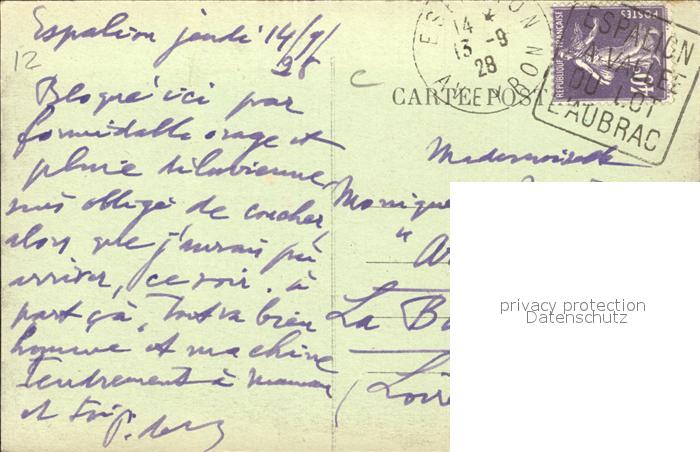 Espalion jeudi 14/9/
28
12
Bloqué ici par
formidable orage et
pluie diluvienne
suis obligé de coucher,
alors que j'aurais pu
arriver, ce soir. à
part ça, tout va bien
homme et machine
Tendrement à maman
et toi,
C
14 *
13 -9
28
AVEYRON
ESPALION
LA VALLEE
DU LOT
L'AUBRAC
REPUBLIQUE FRANÇAISE
POSTES
40c
CARTE POST
Mademoiselle
Monique
"
La B
(Loire
privacy protection
Datenschutz